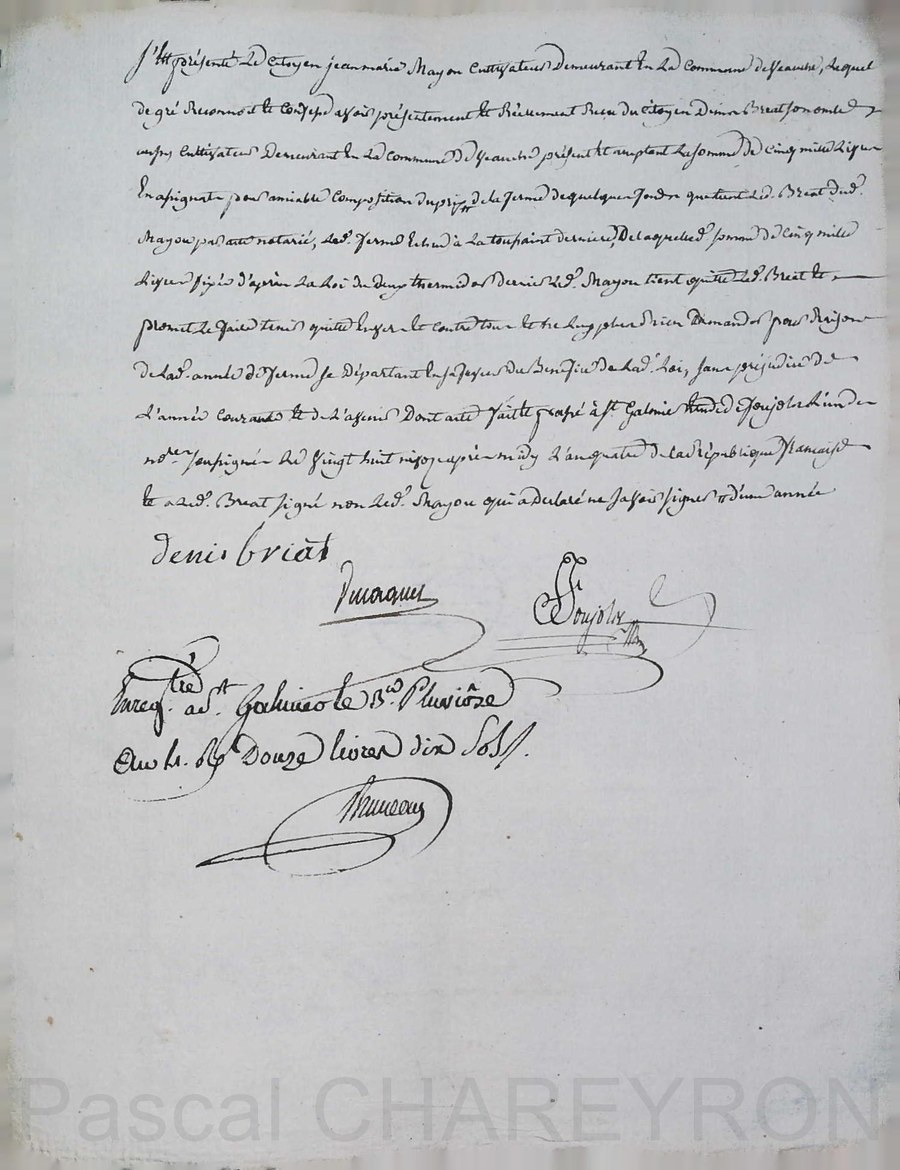 S'est présenté Le Citoyen jean marie Mayou Cultivateur Demeurant En La Commune de Veauche, Lequel
de gré Reconnoit et Confesse avoir présentement et Réelement Receu du Citoyen Denis Breat son oncle
aussy Cultivateur Demeurant En La Commune De Veauche présent et acceptant La somme De Cinq mille Livres
En assignats pour amiable Composition du prix de la ferme de quelques fonds que tient Led. Breat dud.
Mayou par acte notarié, Lad. ferme Echue à La toussaint derniere, De laquelle d. somme De Cinq mille
Livres fixée d'après La Loi du deux thermidor dernier Led. Mayou tient quitte Led. Breat et
promet Le faire tenir quitte Envers et Contre tous et ne Luy plus Rien Demander pour Raison
de Lad. année De ferme se Départant En sa faveur du Benefice de Lad. Loi, sans préjudice de
L'année Courante et de L'avenir Dont acte fait et passé à St. Galmier Etude de Soujolas L'un des
nores. soussignés Le vingt huit nivose après midy L'an quatre de la République française
et a Led. Breat signé non Led. Mayou qui a Declaré ne savoir signer # d'une année
denis briat
Soujolas
Enregtré. à St. Galmier le 3e. Pluviôse
an 4. Rç Douze livres dix Sols.
Bruneau
Pascal CHAREYRON